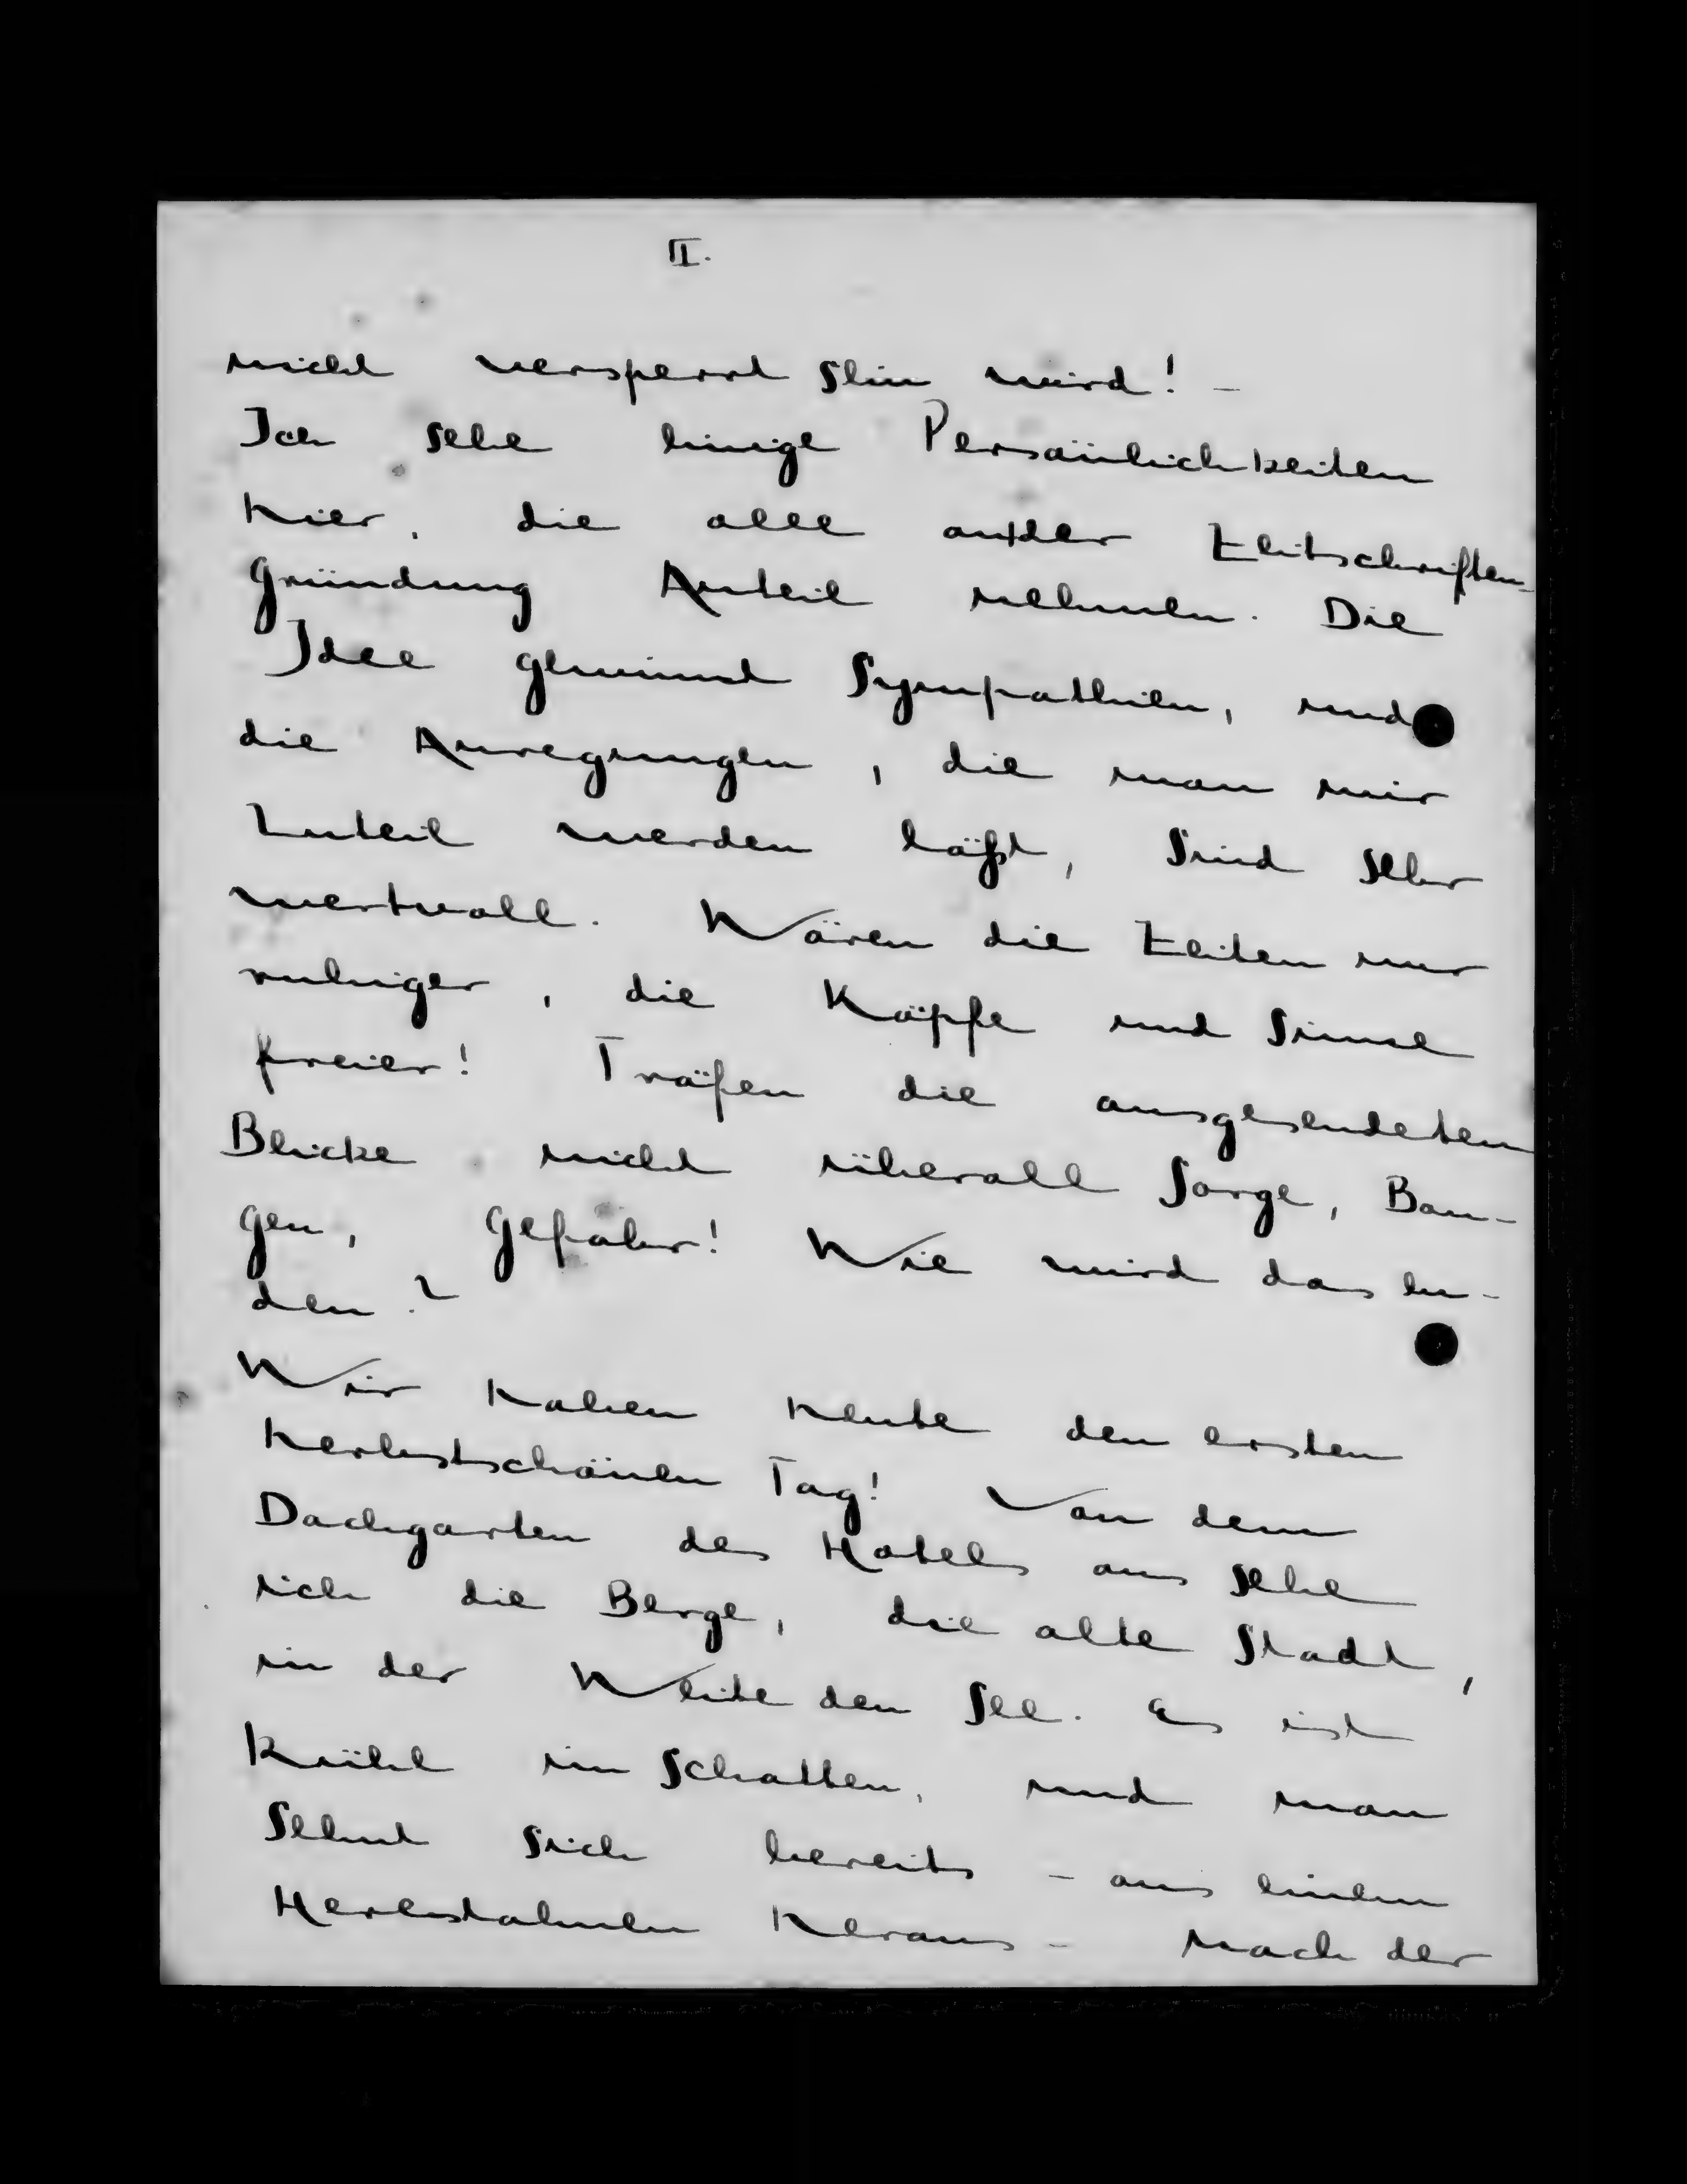 II.
nicht versperrt sein wird! –
Ich sehe einige Persönlichkeiten
hier, die alle an der Zeitschriften-
gründung Anteil nehmen. Die
Idee gewinnt Sympathien, und
die Anregungen, die man mir
zuteil werden läßt, sind sehr
wertvoll. Wären die Zeiten nur
ruhiger, die Köpfe und Sinne
freier! Träfen die ausgesendeten
Blicke nicht überall Sorge, Ban-
gen, Gefahr! Wie wird das en-
den?
Wir haben heute den ersten
herbstschönen Tag! Von dem
Dachgarten des Hotels aus sehe
ich die Berge, die alte Stadt,
in der Weite den See. Es ist
kühl im Schatten, und man
sehnt sich bereits – aus einem
Herbstahnen heraus – nach der